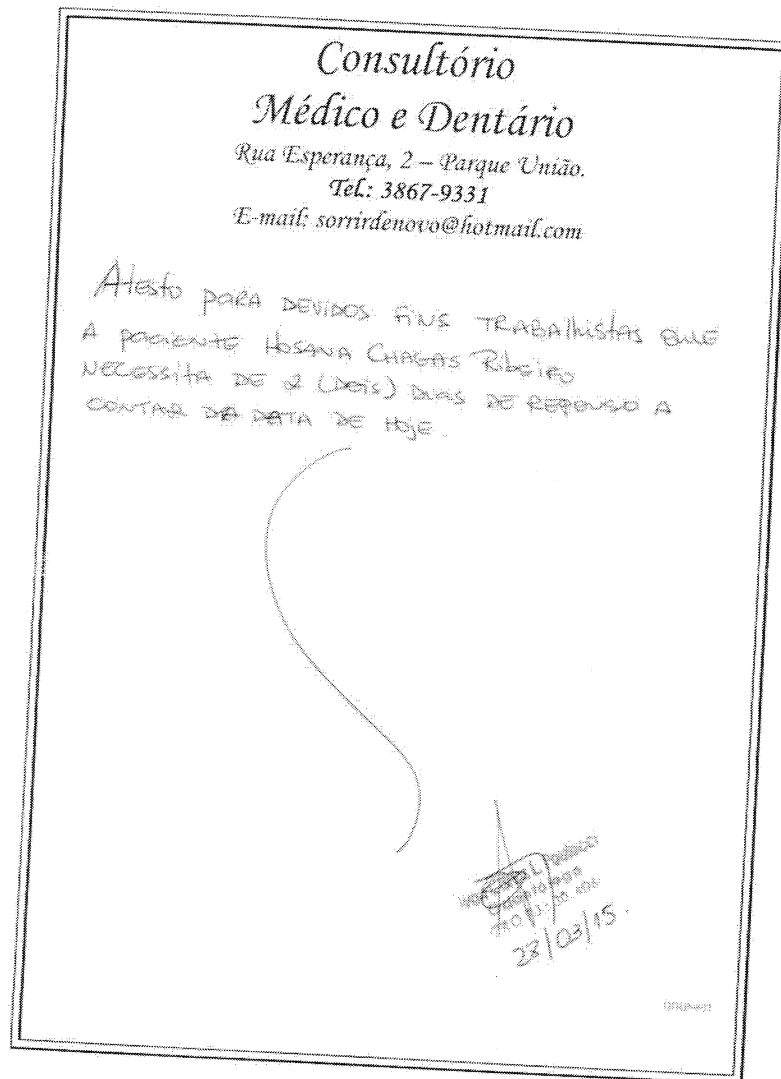 Consultório
Médico e Dentário
Rua Esperança, 2 – Parque União.
Tel.: 3867-9331
E-mail: sorrirdenovo@hotmail.com
Atesto para DEVIDOS FINS TRABAlhistas QUE
A paciente Hosana Chagas Ribeiro
NECESSITA DE 2 (Dois) DIAS DE REPOUSO A
CONTAR DA DATA DE HOJE.
23/03/15.